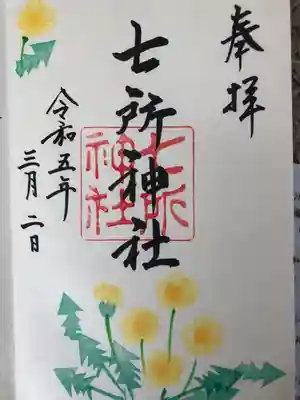 奉拝
七所神社
七所神社
令和五年
三月二日